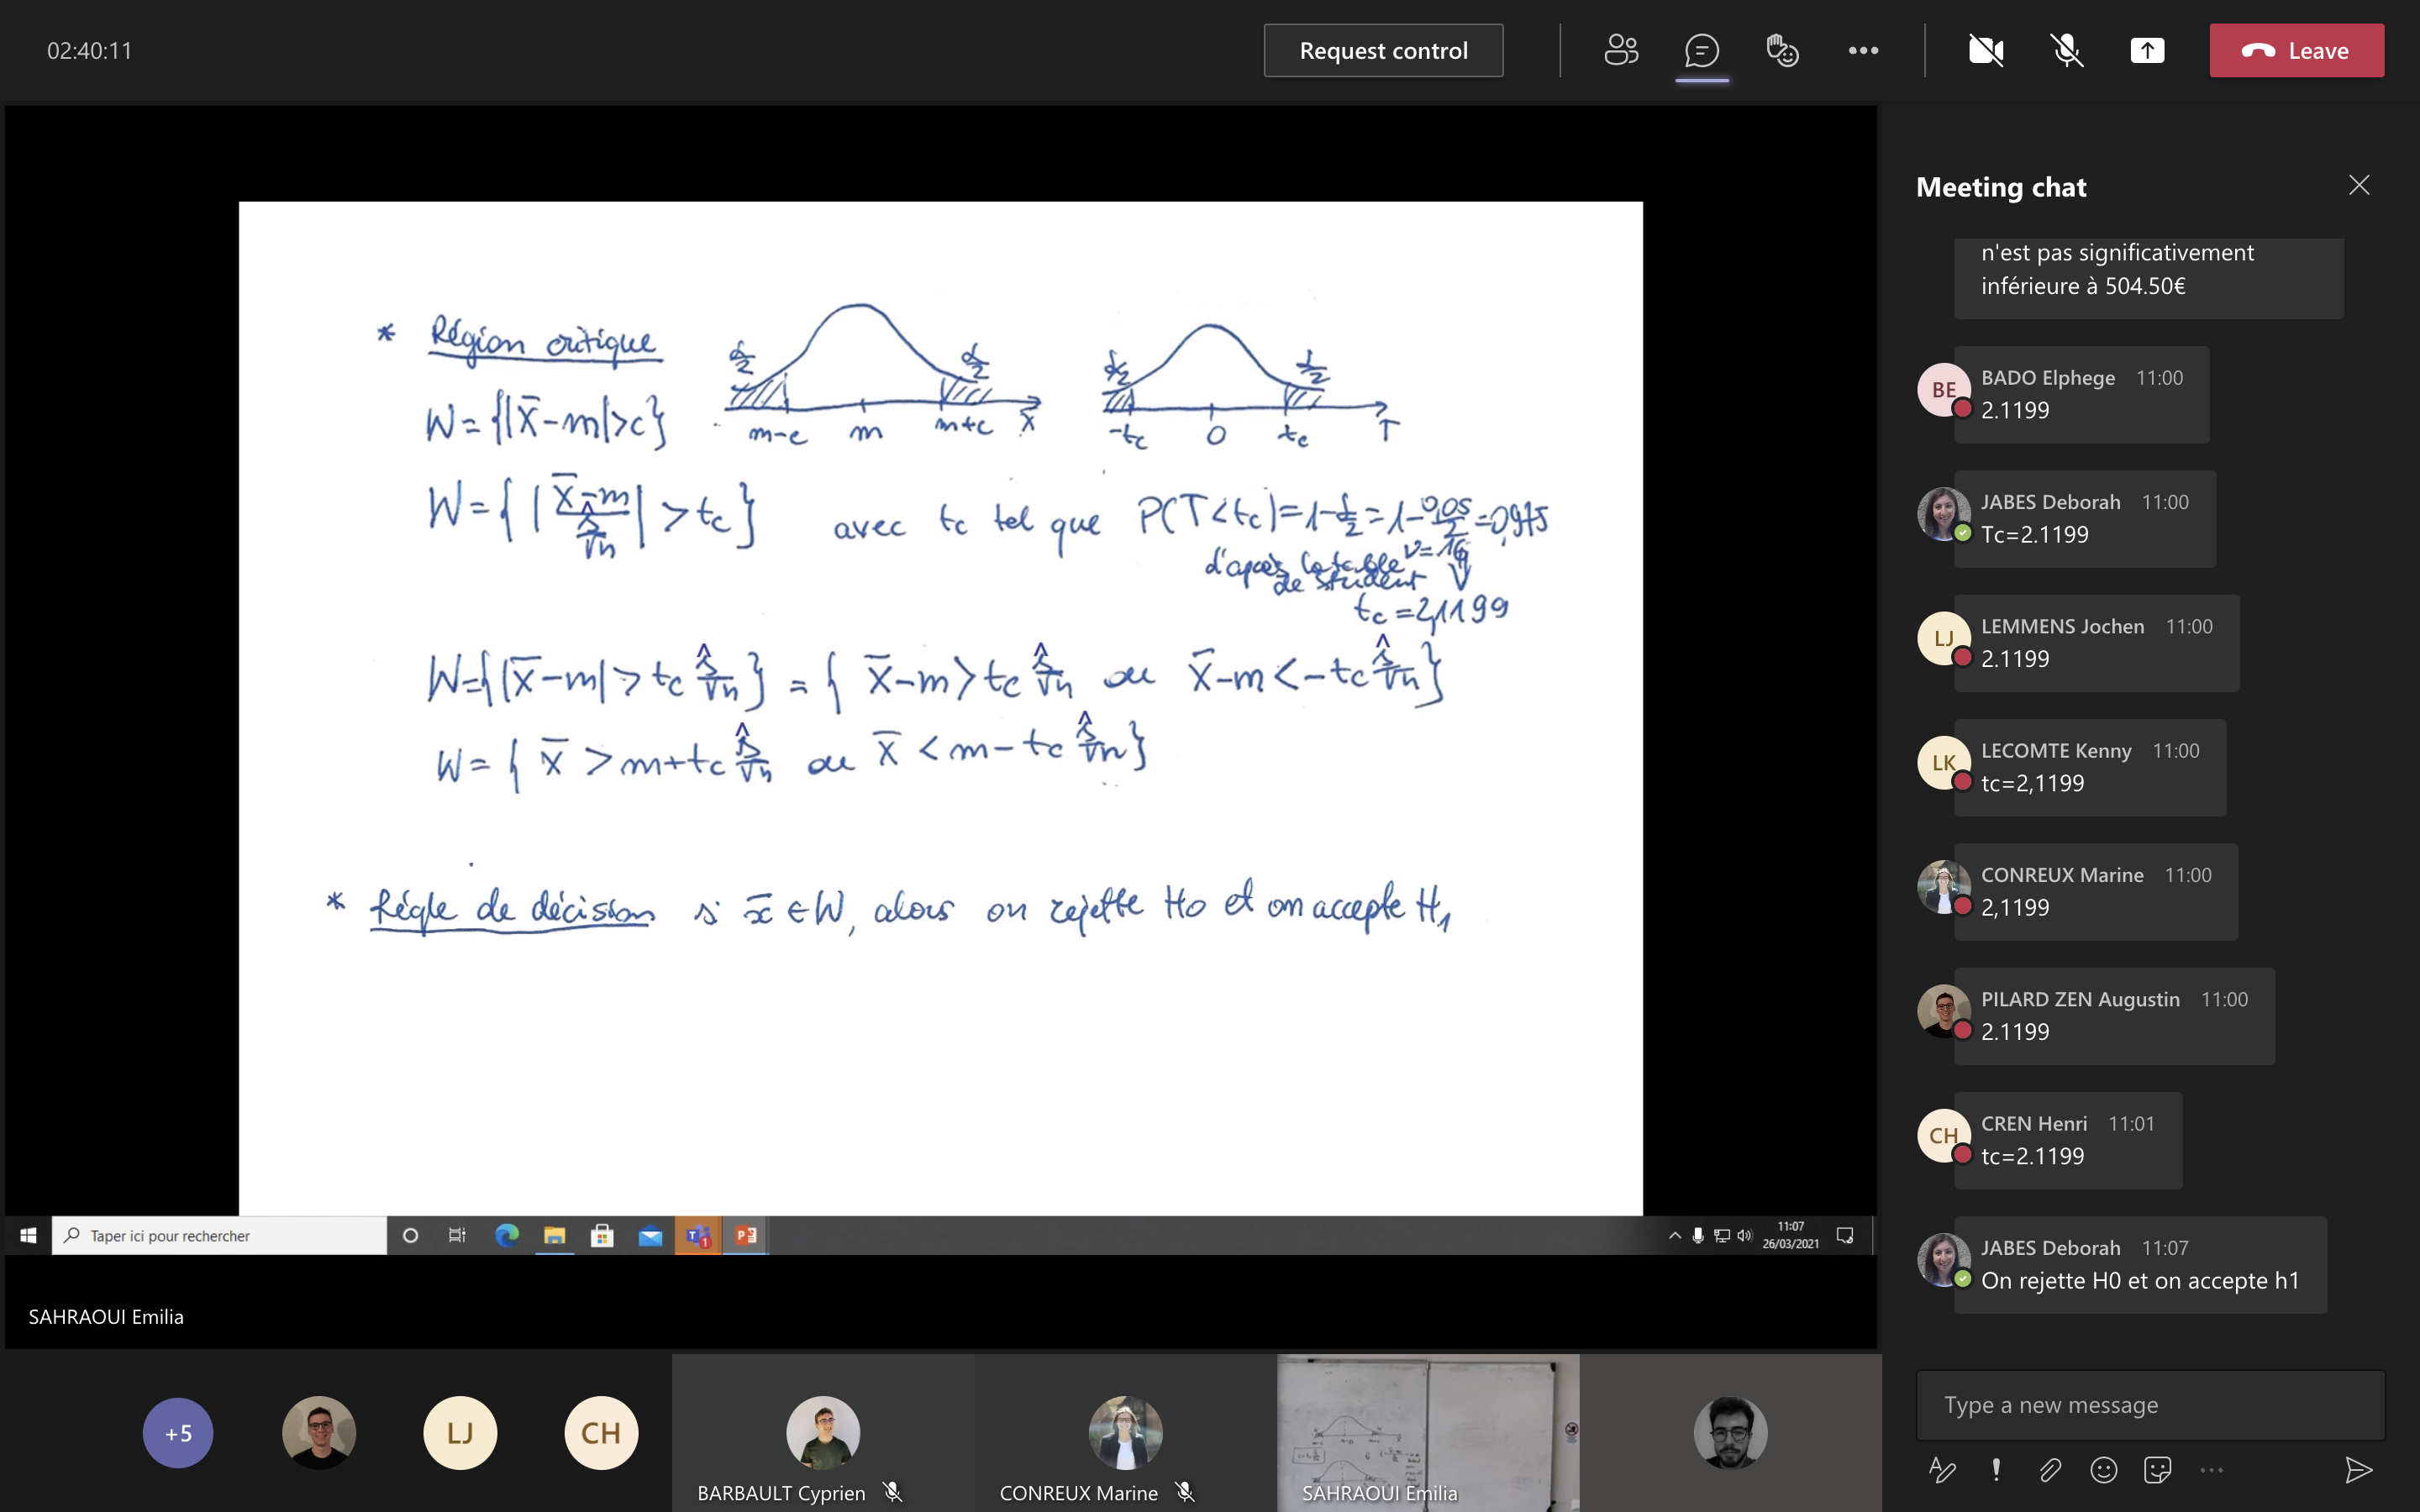 02:40:11
Request control
Leave
* Région critique
α/2
α/2
m-c
m
m+c
X̄
α/2
α/2
-tc
0
tc
T
W={|X̄-m|>c}
W={|X̄-m / ŝ/√n|>tc} avec tc tel que P(T<tc)=1-α/2=1-0,05/2=0,975
d'après la table ν=16
de student
tc=2,1199
W={|X̄-m|>tc ŝ/√n}={X̄-m>tc ŝ/√n ou X̄-m<-tc ŝ/√n}
W={X̄>m+tc ŝ/√n ou X̄<m-tc ŝ/√n}
* Régle de décision si x̄∈W, alors on rejette H0 et on accepte H1
Taper ici pour rechercher
1
11:07
26/03/2021
SAHRAOUI Emilia
+5
LJ
CH
BARBAULT Cyprien
CONREUX Marine
SAHRAOUI Emilia
Meeting chat
n'est pas significativement
inférieure à 504.50€
BE
BADO Elphege 11:00
2.1199
JABES Deborah 11:00
Tc=2.1199
LJ
LEMMENS Jochen 11:00
2.1199
LK
LECOMTE Kenny 11:00
tc=2,1199
CONREUX Marine 11:00
2,1199
PILARD ZEN Augustin 11:00
2.1199
CH
CREN Henri 11:01
tc=2.1199
JABES Deborah 11:07
On rejette H0 et on accepte h1
Type a new message